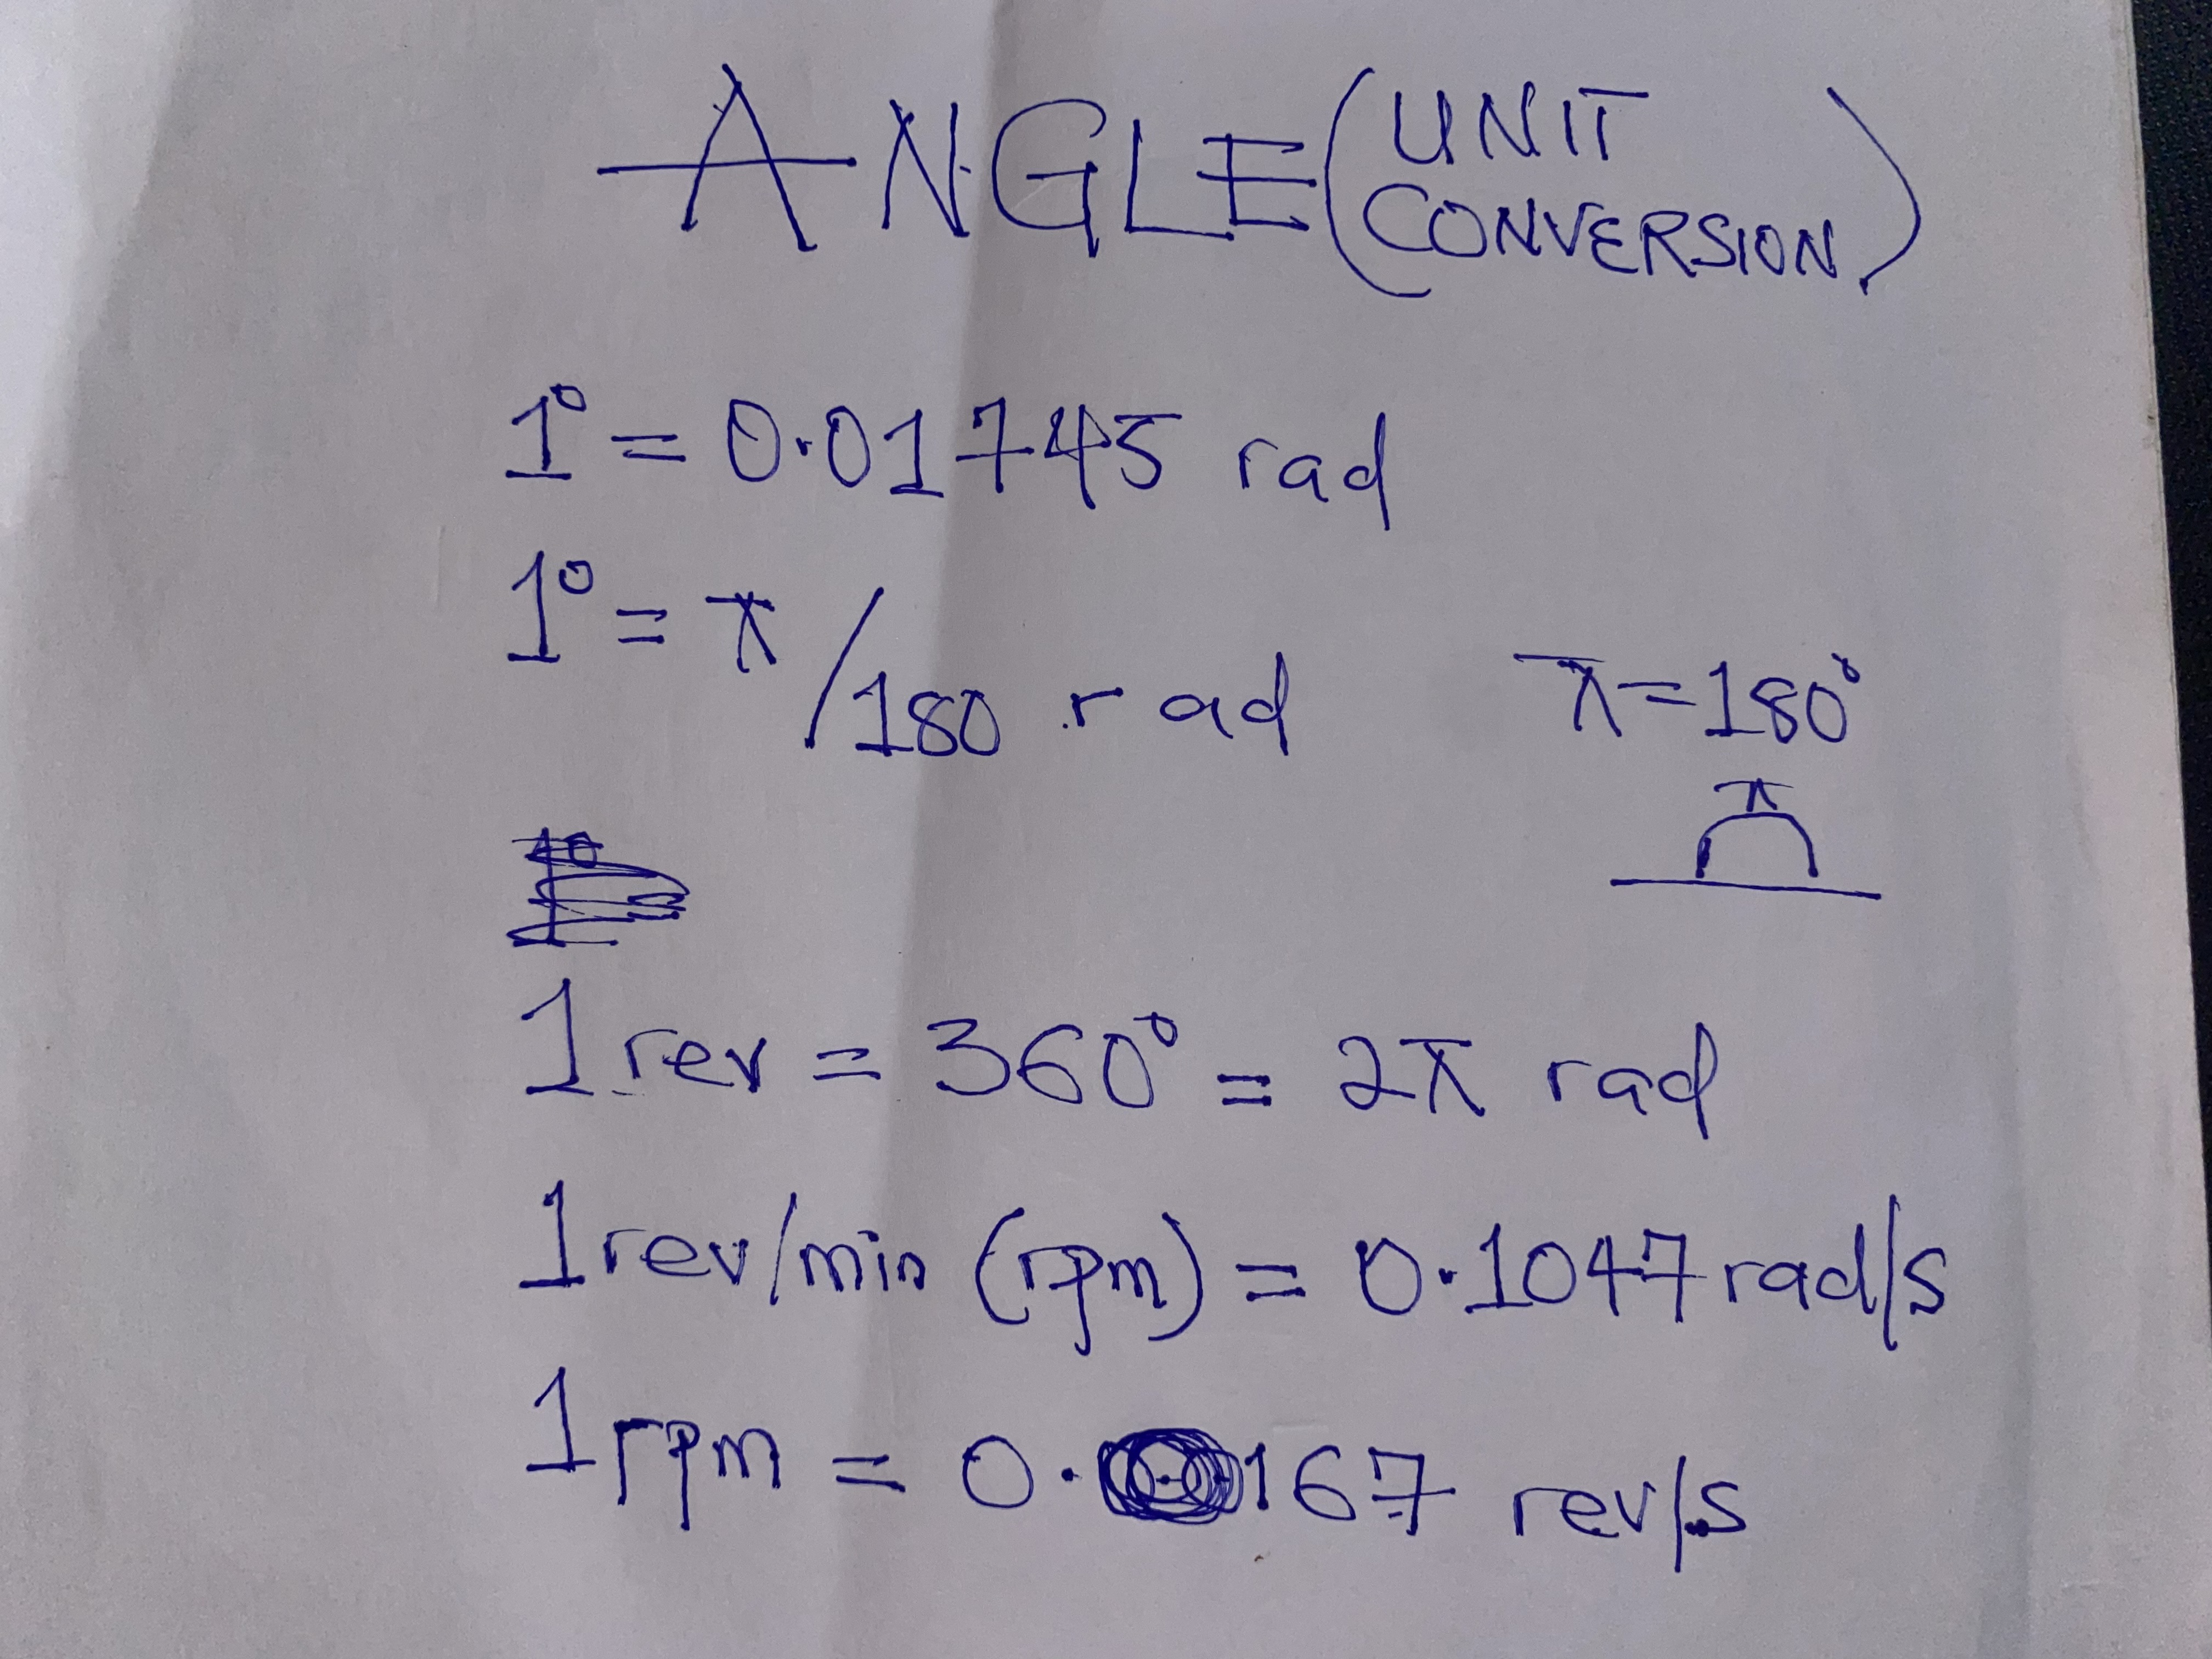 ANGLE (UNIT CONVERSION)
1° = 0.01745 rad
1° = π/180 rad
π = 180°
π
1 rev = 360° = 2π rad
1 rev/min (rpm) = 0.1047 rad/s
1 rpm = 0.167 rev/s